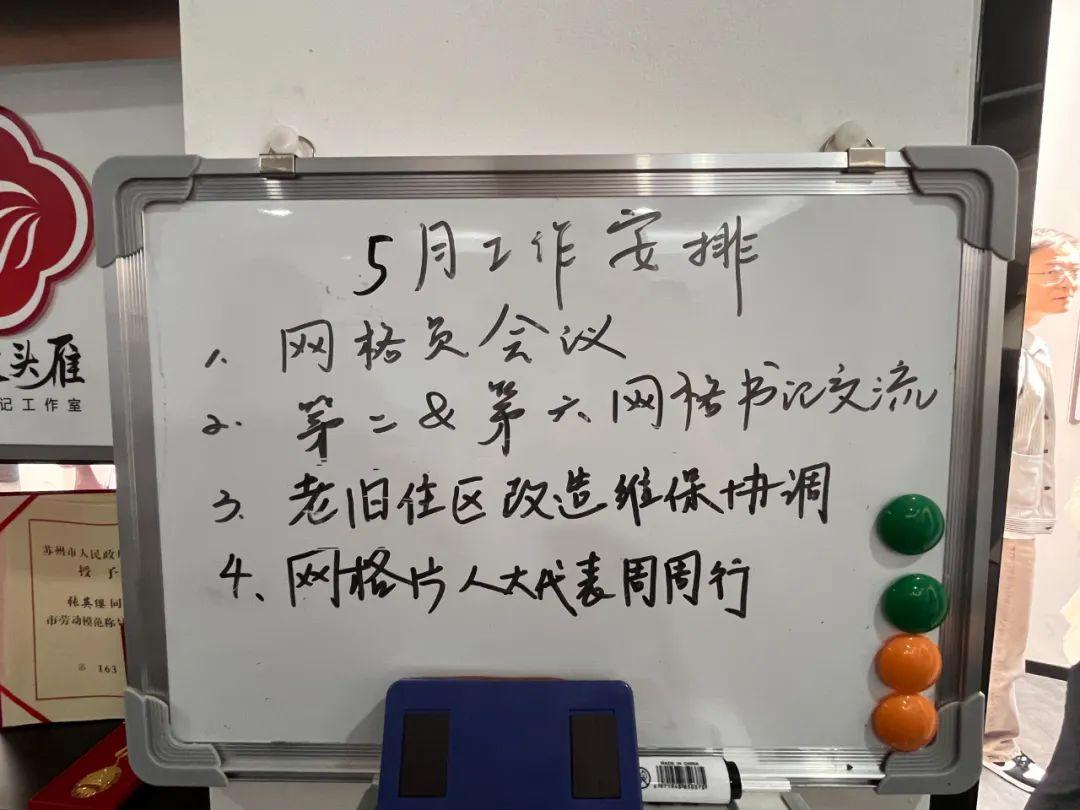 5月工作安排
1. 网格员会议
2. 第二&第六网格书记交流
3. 老旧住区改造维保协调
4、网格片人大代表周周行
头雁
记工作室
苏州市人民政
授予
张英缨同
市劳动模范称
163
MADE IN CHINA